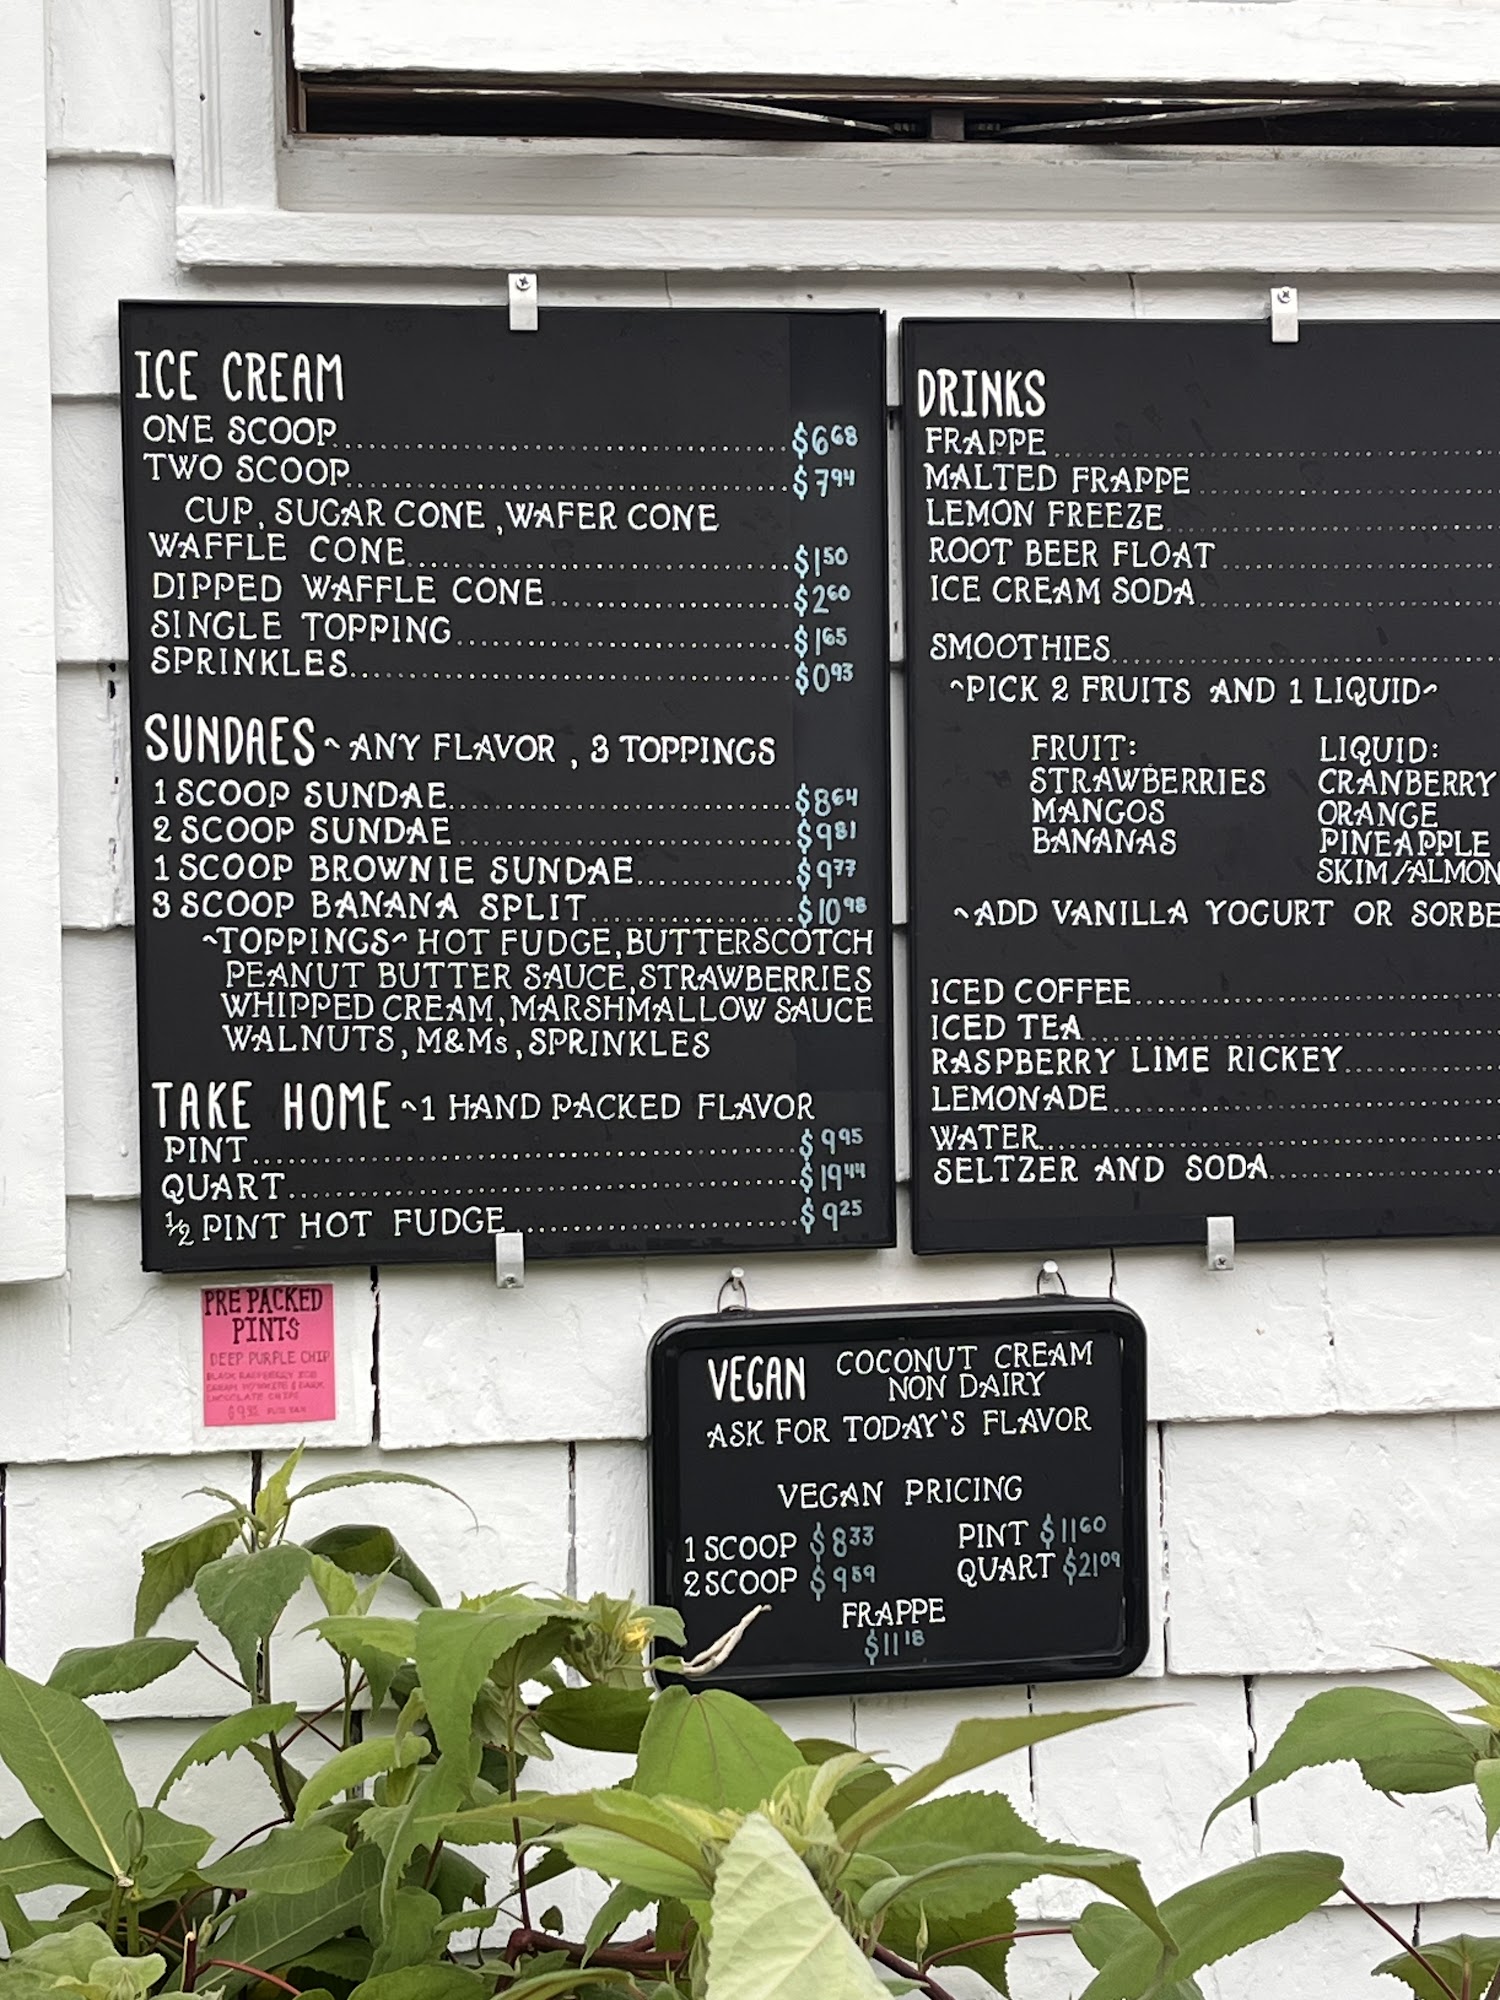 ICE CREAM
ONE SCOOP $6.68
TWO SCOOP $7.94
CUP, SUGAR CONE, WAFER CONE
WAFFLE CONE $1.50
DIPPED WAFFLE CONE $2.60
SINGLE TOPPING $1.65
SPRINKLES $0.93
SUNDAES ~ ANY FLAVOR, 3 TOPPINGS
1 SCOOP SUNDAE $8.64
2 SCOOP SUNDAE $9.81
1 SCOOP BROWNIE SUNDAE $9.77
3 SCOOP BANANA SPLIT $10.98
~TOPPINGS~ HOT FUDGE, BUTTERSCOTCH
PEANUT BUTTER SAUCE, STRAWBERRIES
WHIPPED CREAM, MARSHMALLOW SAUCE
WALNUTS, M&Ms, SPRINKLES
TAKE HOME ~1 HAND PACKED FLAVOR
PINT $9.95
QUART $19.44
½ PINT HOT FUDGE $9.25
DRINKS
FRAPPE
MALTED FRAPPE
LEMON FREEZE
ROOT BEER FLOAT
ICE CREAM SODA
SMOOTHIES
~PICK 2 FRUITS AND 1 LIQUID~
FRUIT: LIQUID:
STRAWBERRIES CRANBERRY
MANGOS ORANGE
BANANAS PINEAPPLE
SKIM/ALMON
~ADD VANILLA YOGURT OR SORBE
ICED COFFEE
ICED TEA
RASPBERRY LIME RICKEY
LEMONADE
WATER
SELTZER AND SODA
PRE PACKED
PINTS
DEEP PURPLE CHIP
BLACK RASPBERRY ICE
CREAM W/WHITE & DARK
CHOCOLATE CHIPS
VEGAN COCONUT CREAM
NON DAIRY
ASK FOR TODAY'S FLAVOR
VEGAN PRICING
1 SCOOP $8.33 PINT $11.60
2 SCOOP $9.59 QUART $21.09
FRAPPE
$11.18